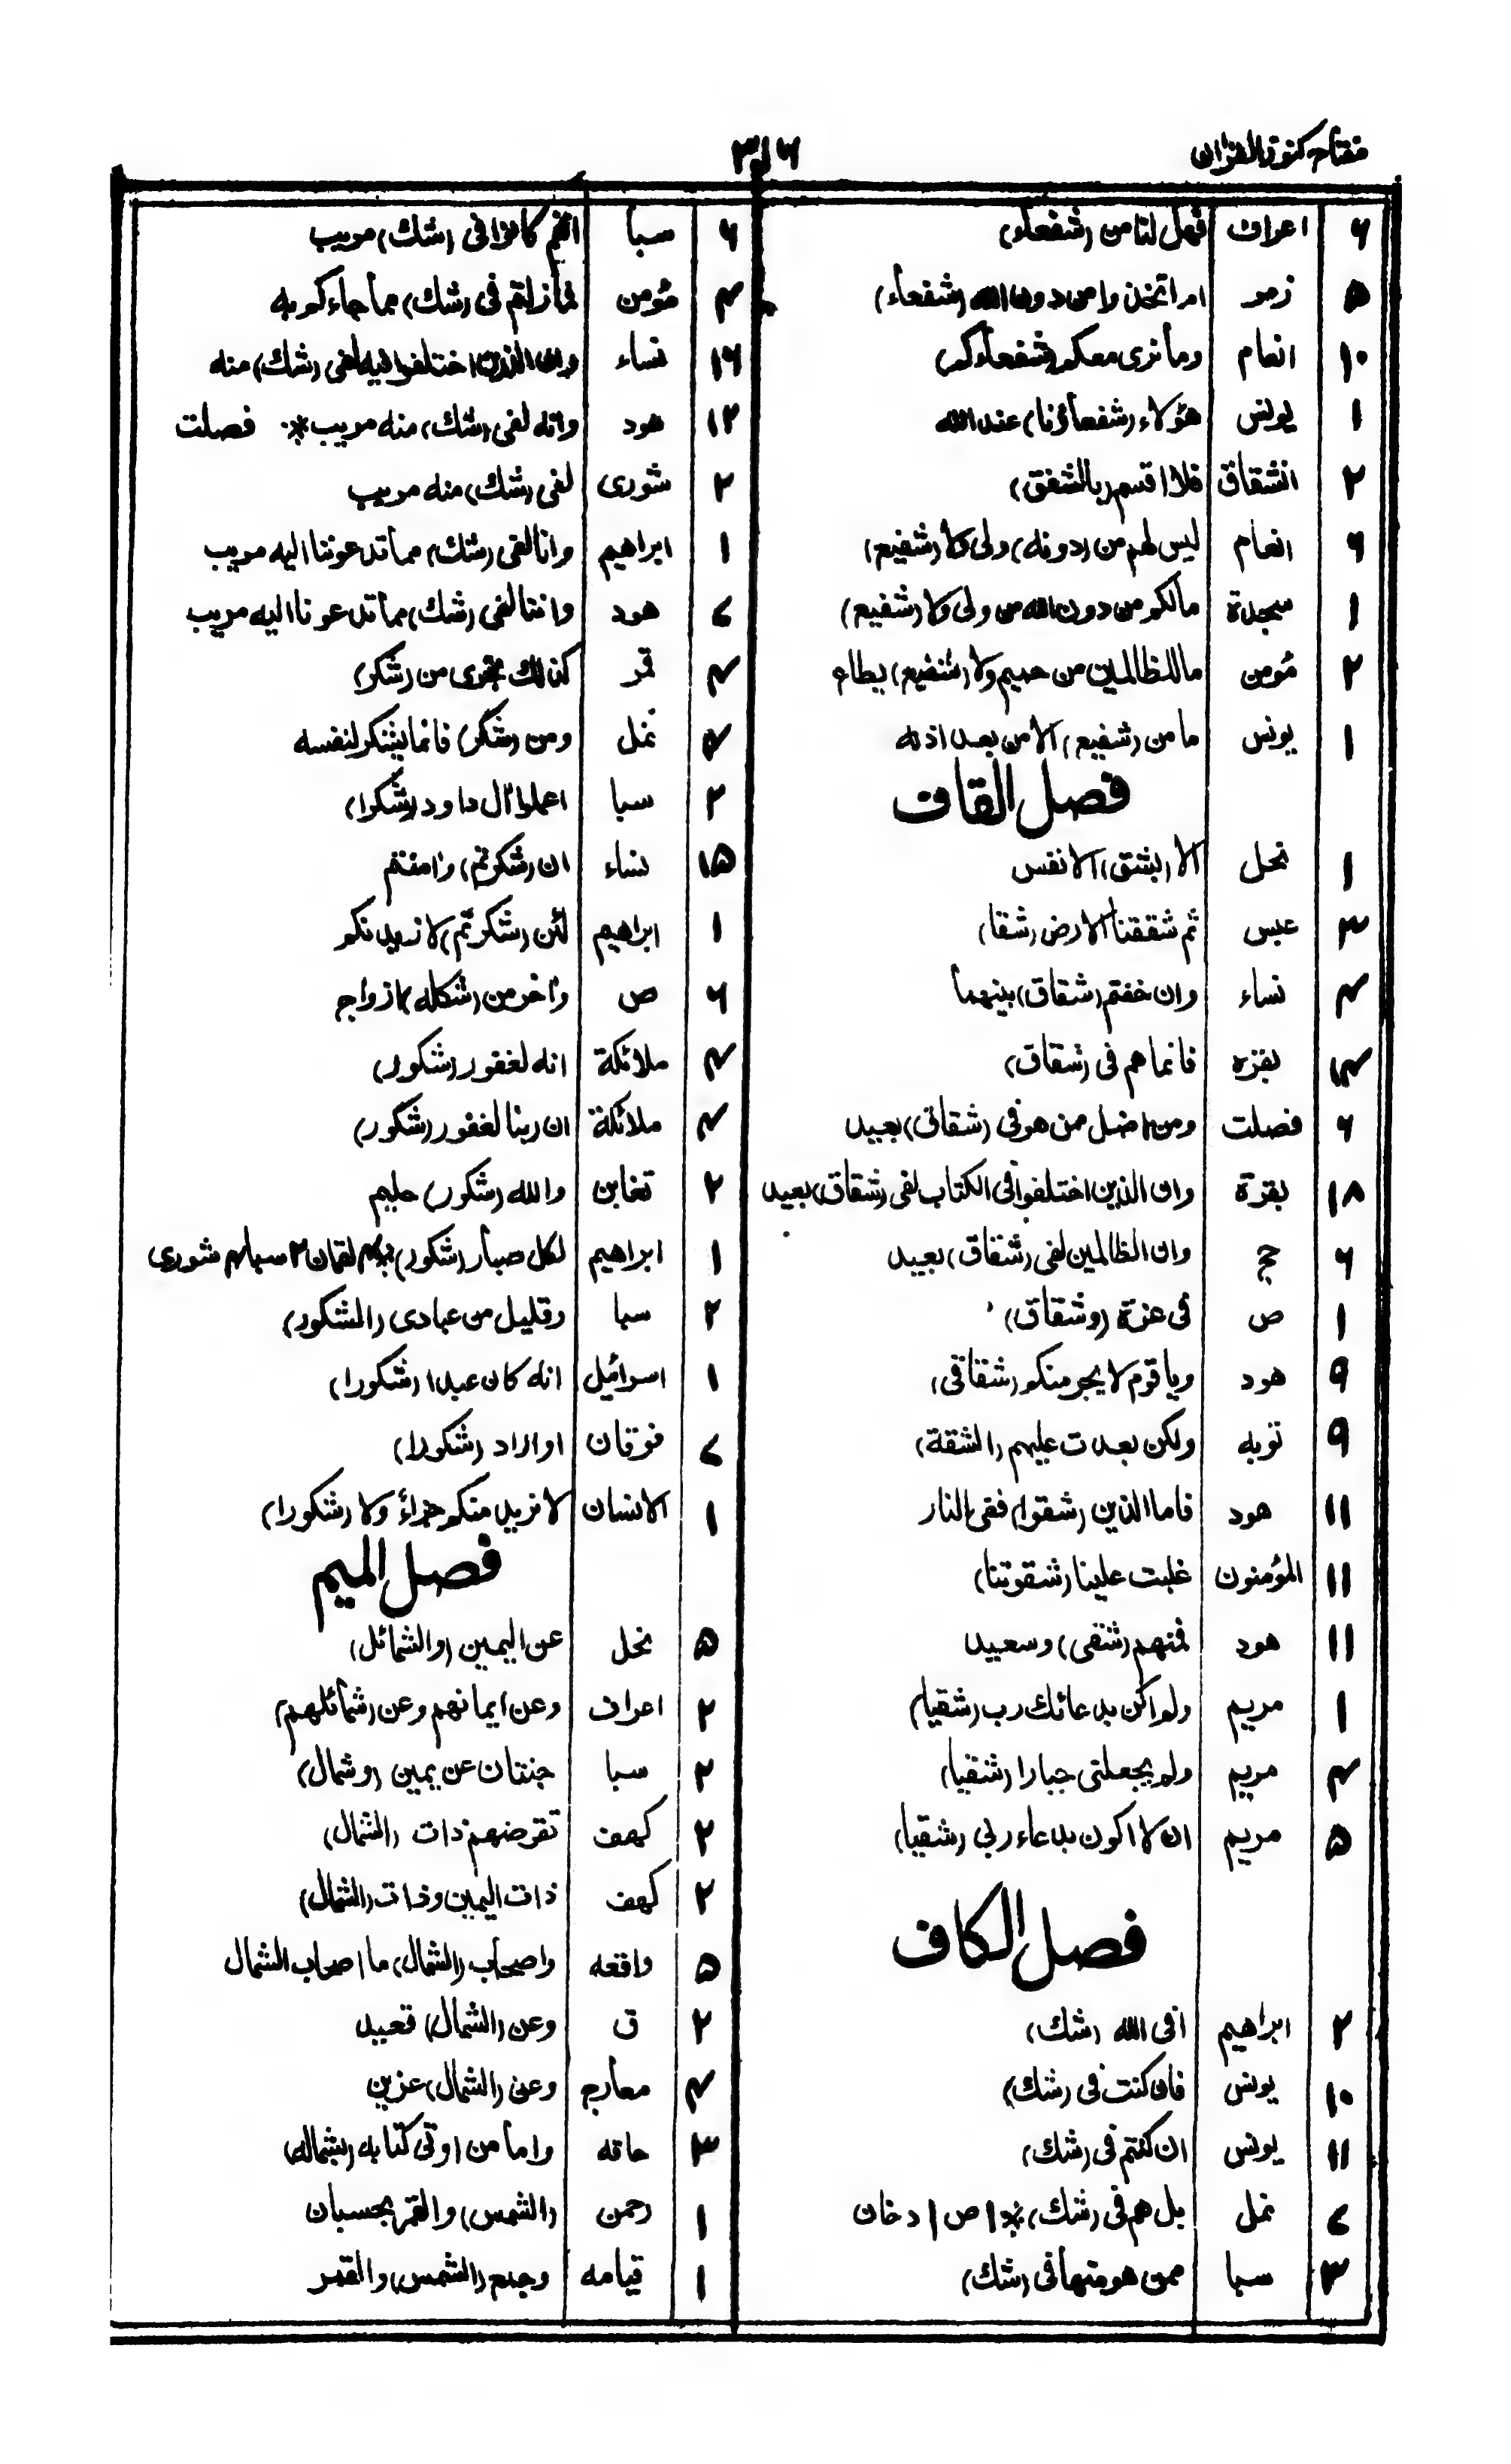 مفتاح كنوز القران
۳۱۶
۶ اعراف فهل لنا من (شفعاء)
۵ زمر ام اتخذوا من دون الله (شفعاء)
۱۰ انعام وما نرى معكم (شفعاءكم)
۱ يونس هؤلاء (شفعاؤنا) عند الله
۲ انشقاق فلا اقسم (بالشفق)
۶ انعام ليس لهم من (دونه) ولى ولا (شفيع)
۱ سجدة مالكم من دون الله من ولى ولا (شفيع)
۲ مؤمن ما للظالمين من حميم ولا (شفيع) يطاع
۱ يونس ما من (شفيع) الا من بعد اذنه
فصل القاف
۱ نحل الا (بشق) الانفس
۳ عبس ثم شققنا الارض (شقا)
۴ نساء وان خفتم (شقاق) بينهما
۱۴ بقره فانما هم فى (شقاق)
۶ فصلت ومن اضل ممن هو فى (شقاق) بعيد
۱۸ بقرة وان الذين اختلفوا فى الكتاب لفى (شقاق) بعيد
۶ حج وان الظالمين لفى (شقاق) بعيد
۱ ص فى عزة (وشقاق)
۹ هود ويا قوم لا يجرمنكم (شقاقى)
۹ توبه ولكن بعدت عليهم (الشقة)
۱۱ هود فاما الذين (شقوا) ففى النار
۱۱ المؤمنون غلبت علينا (شقوتنا)
۱۱ هود فمنهم (شقى) وسعيد
۱ مريم ولم اكن بدعائك رب (شقيا)
۴ مريم ولم يجعلنى جبارا (شقيا)
۵ مريم ان لا اكون بدعاء ربى (شقيا)
فصل الكاف
۲ ابراهيم افى الله (شك)
۱۰ يونس فان كنت فى (شك)
۱۱ يونس ان كنتم فى (شك)
۶ نمل بل هم فى (شك) * ۱ ص ۱ دخان
۳ سبا ممن هو منها فى (شك)
۶ سبا انهم كانوا فى (شك) مريب
۴ مؤمن فما زلتم فى (شك) مما جاءكم به
۱۶ نساء وان الذين اختلفوا فيه لفى (شك) منه
۱۲ هود وانه لفى (شك) منه مريب * فصلت
۲ شورى لفى (شك) منه مريب
۱ ابراهيم وانا لفى (شك) مما تدعوننا اليه مريب
۶ هود واننا لفى (شك) مما تدعونا اليه مريب
۴ قمر كذلك نجزى من (شكر)
۴ نمل ومن (شكر) فانما يشكر لنفسه
۲ سبا اعملوا آل داود (شكرا)
۱۵ نساء ان (شكرتم) وامنتم
۱ ابراهيم لئن (شكرتم) لازيدنكم
۶ ص وآخر من (شكله) ازواج
۴ ملائكة انه لغفور (شكور)
۴ ملائكة ان ربنا لغفور (شكور)
۲ تغابن والله (شكور) حليم
۱ ابراهيم لكل صبار (شكور) * ۴ لقمان ۲ سبا ۴ شورى
۲ سبا وقليل من عبادى (الشكور)
۱ اسرائيل انه كان عبدا (شكورا)
۶ فرقان او اراد (شكورا)
۱ الانسان لا نريد منكم جزاء ولا (شكورا)
فصل الميم
۵ نحل عن اليمين (والشمائل)
۲ اعراف وعن ايمانهم وعن (شمائلهم)
۲ سبا جنتان عن يمين (وشمال)
۲ كهف تقرضهم ذات (الشمال)
۲ كهف ذات اليمين وذات (الشمال)
۵ واقعه واصحاب (الشمال) ما اصحاب الشمال
۲ ق وعن (الشمال) قعيد
۴ معارج وعن (الشمال) عزين
۳ حاقه واما من اوتى كتابه (بشماله)
۱ رحمن (الشمس) والقمر بحسبان
۱ قيامه وجمع (الشمس) والقمر